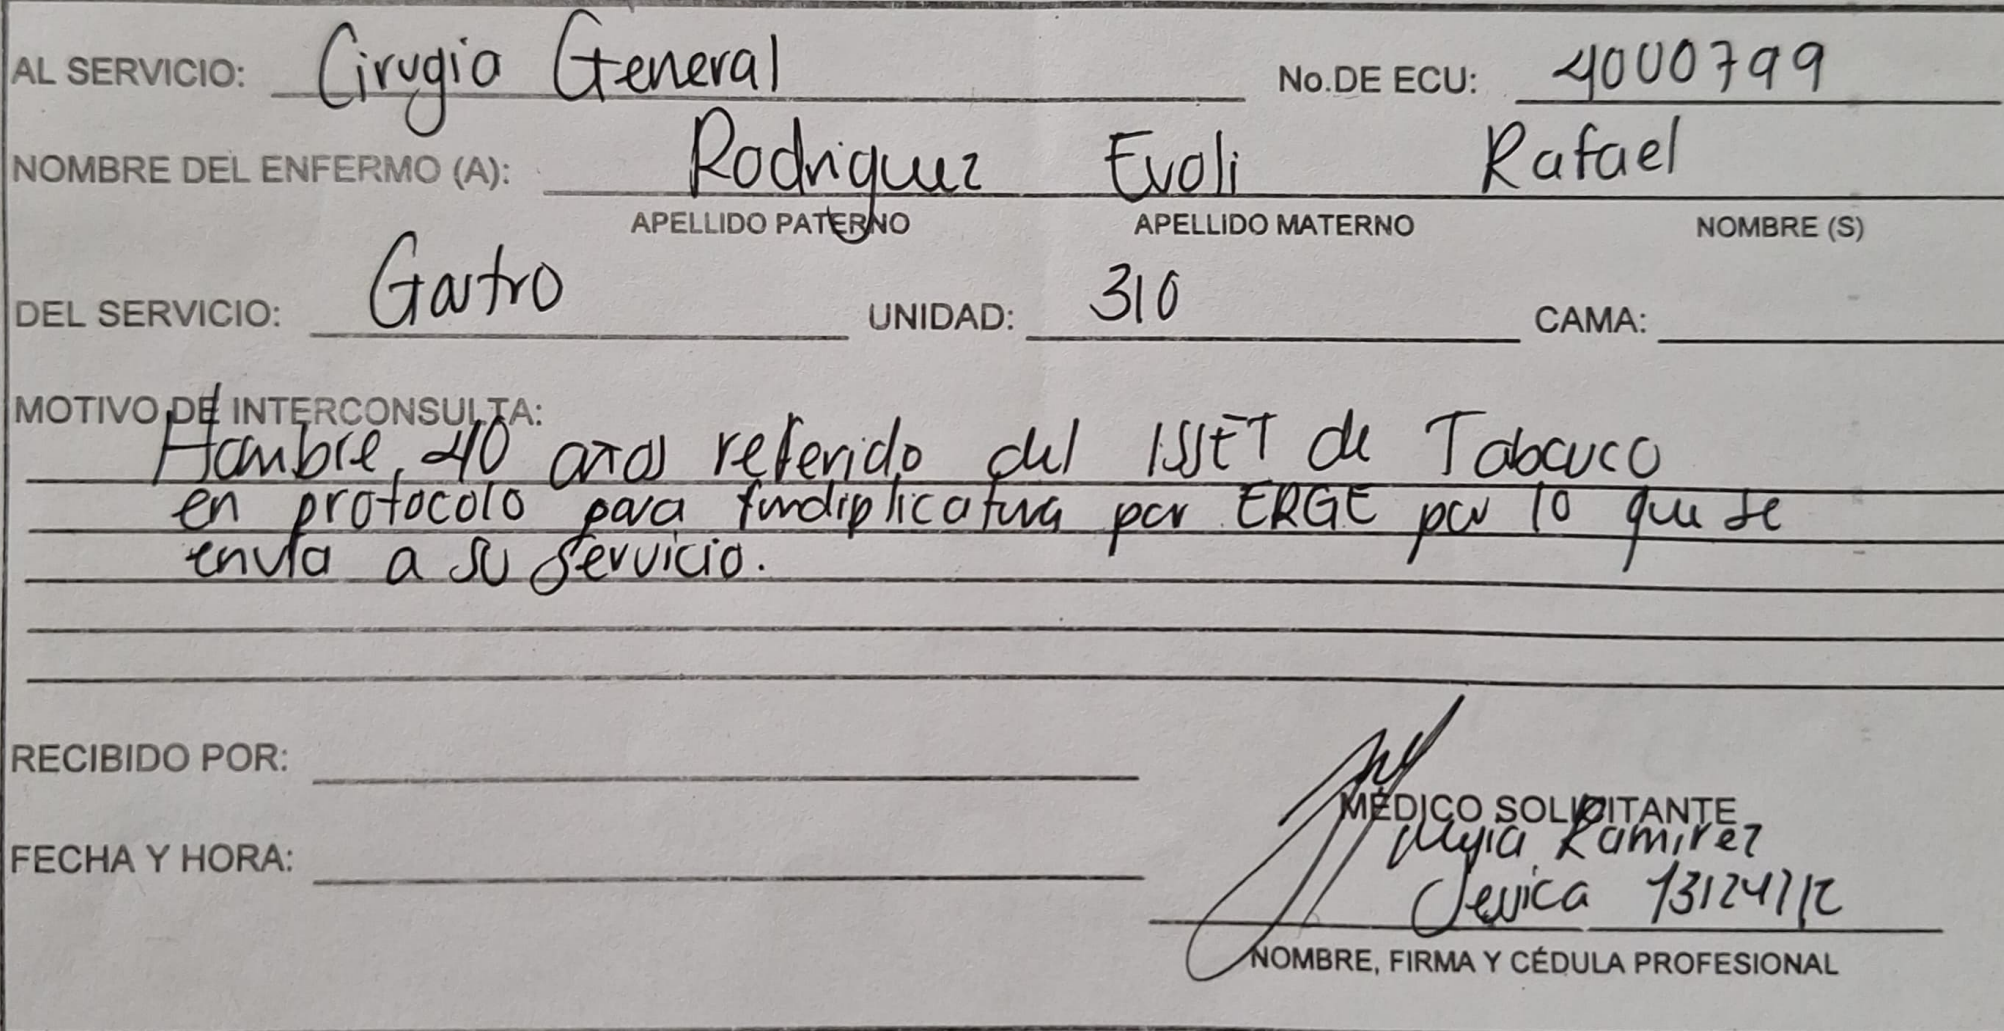 AL SERVICIO: Cirugia General No.DE ECU: 4000799
NOMBRE DEL ENFERMO (A): Rodriguez Evoli Rafael
APELLIDO PATERNO APELLIDO MATERNO NOMBRE (S)
DEL SERVICIO: Gastro UNIDAD: 310 CAMA:
MOTIVO DE INTERCONSULTA:
Hombre, 40 años referido del ISSET de Tabasco
en protocolo para fundiplicatura por ERGE por lo que se
envía a su servicio.
RECIBIDO POR:
MÉDICO SOLICITANTE
Ramirez
FECHA Y HORA:
Jessica
NOMBRE, FIRMA Y CÉDULA PROFESIONAL